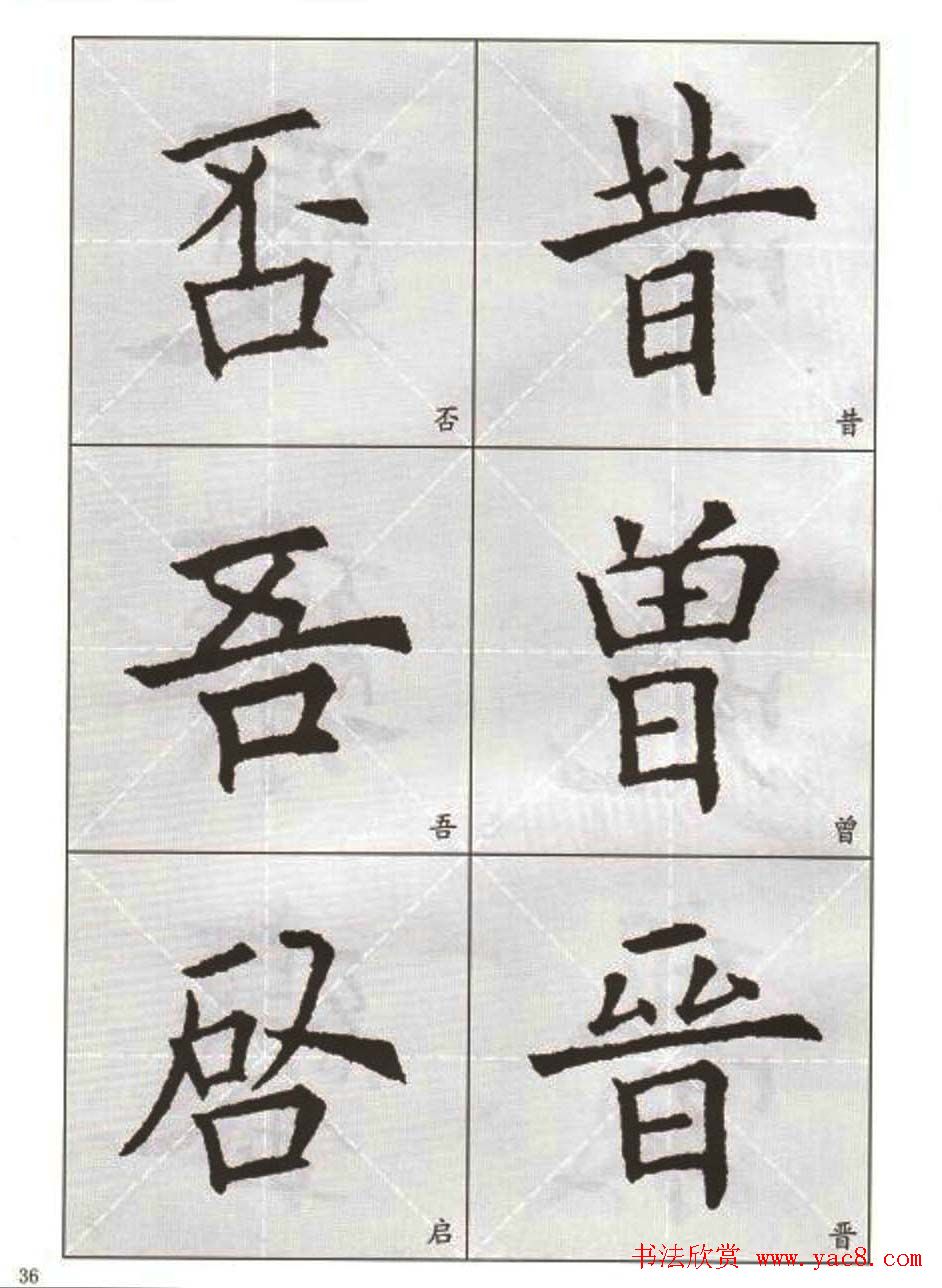 昔
昔
曾
曾
晉
晋
否
否
吾
吾
啓
启
36
书法欣赏 www.yac8.com